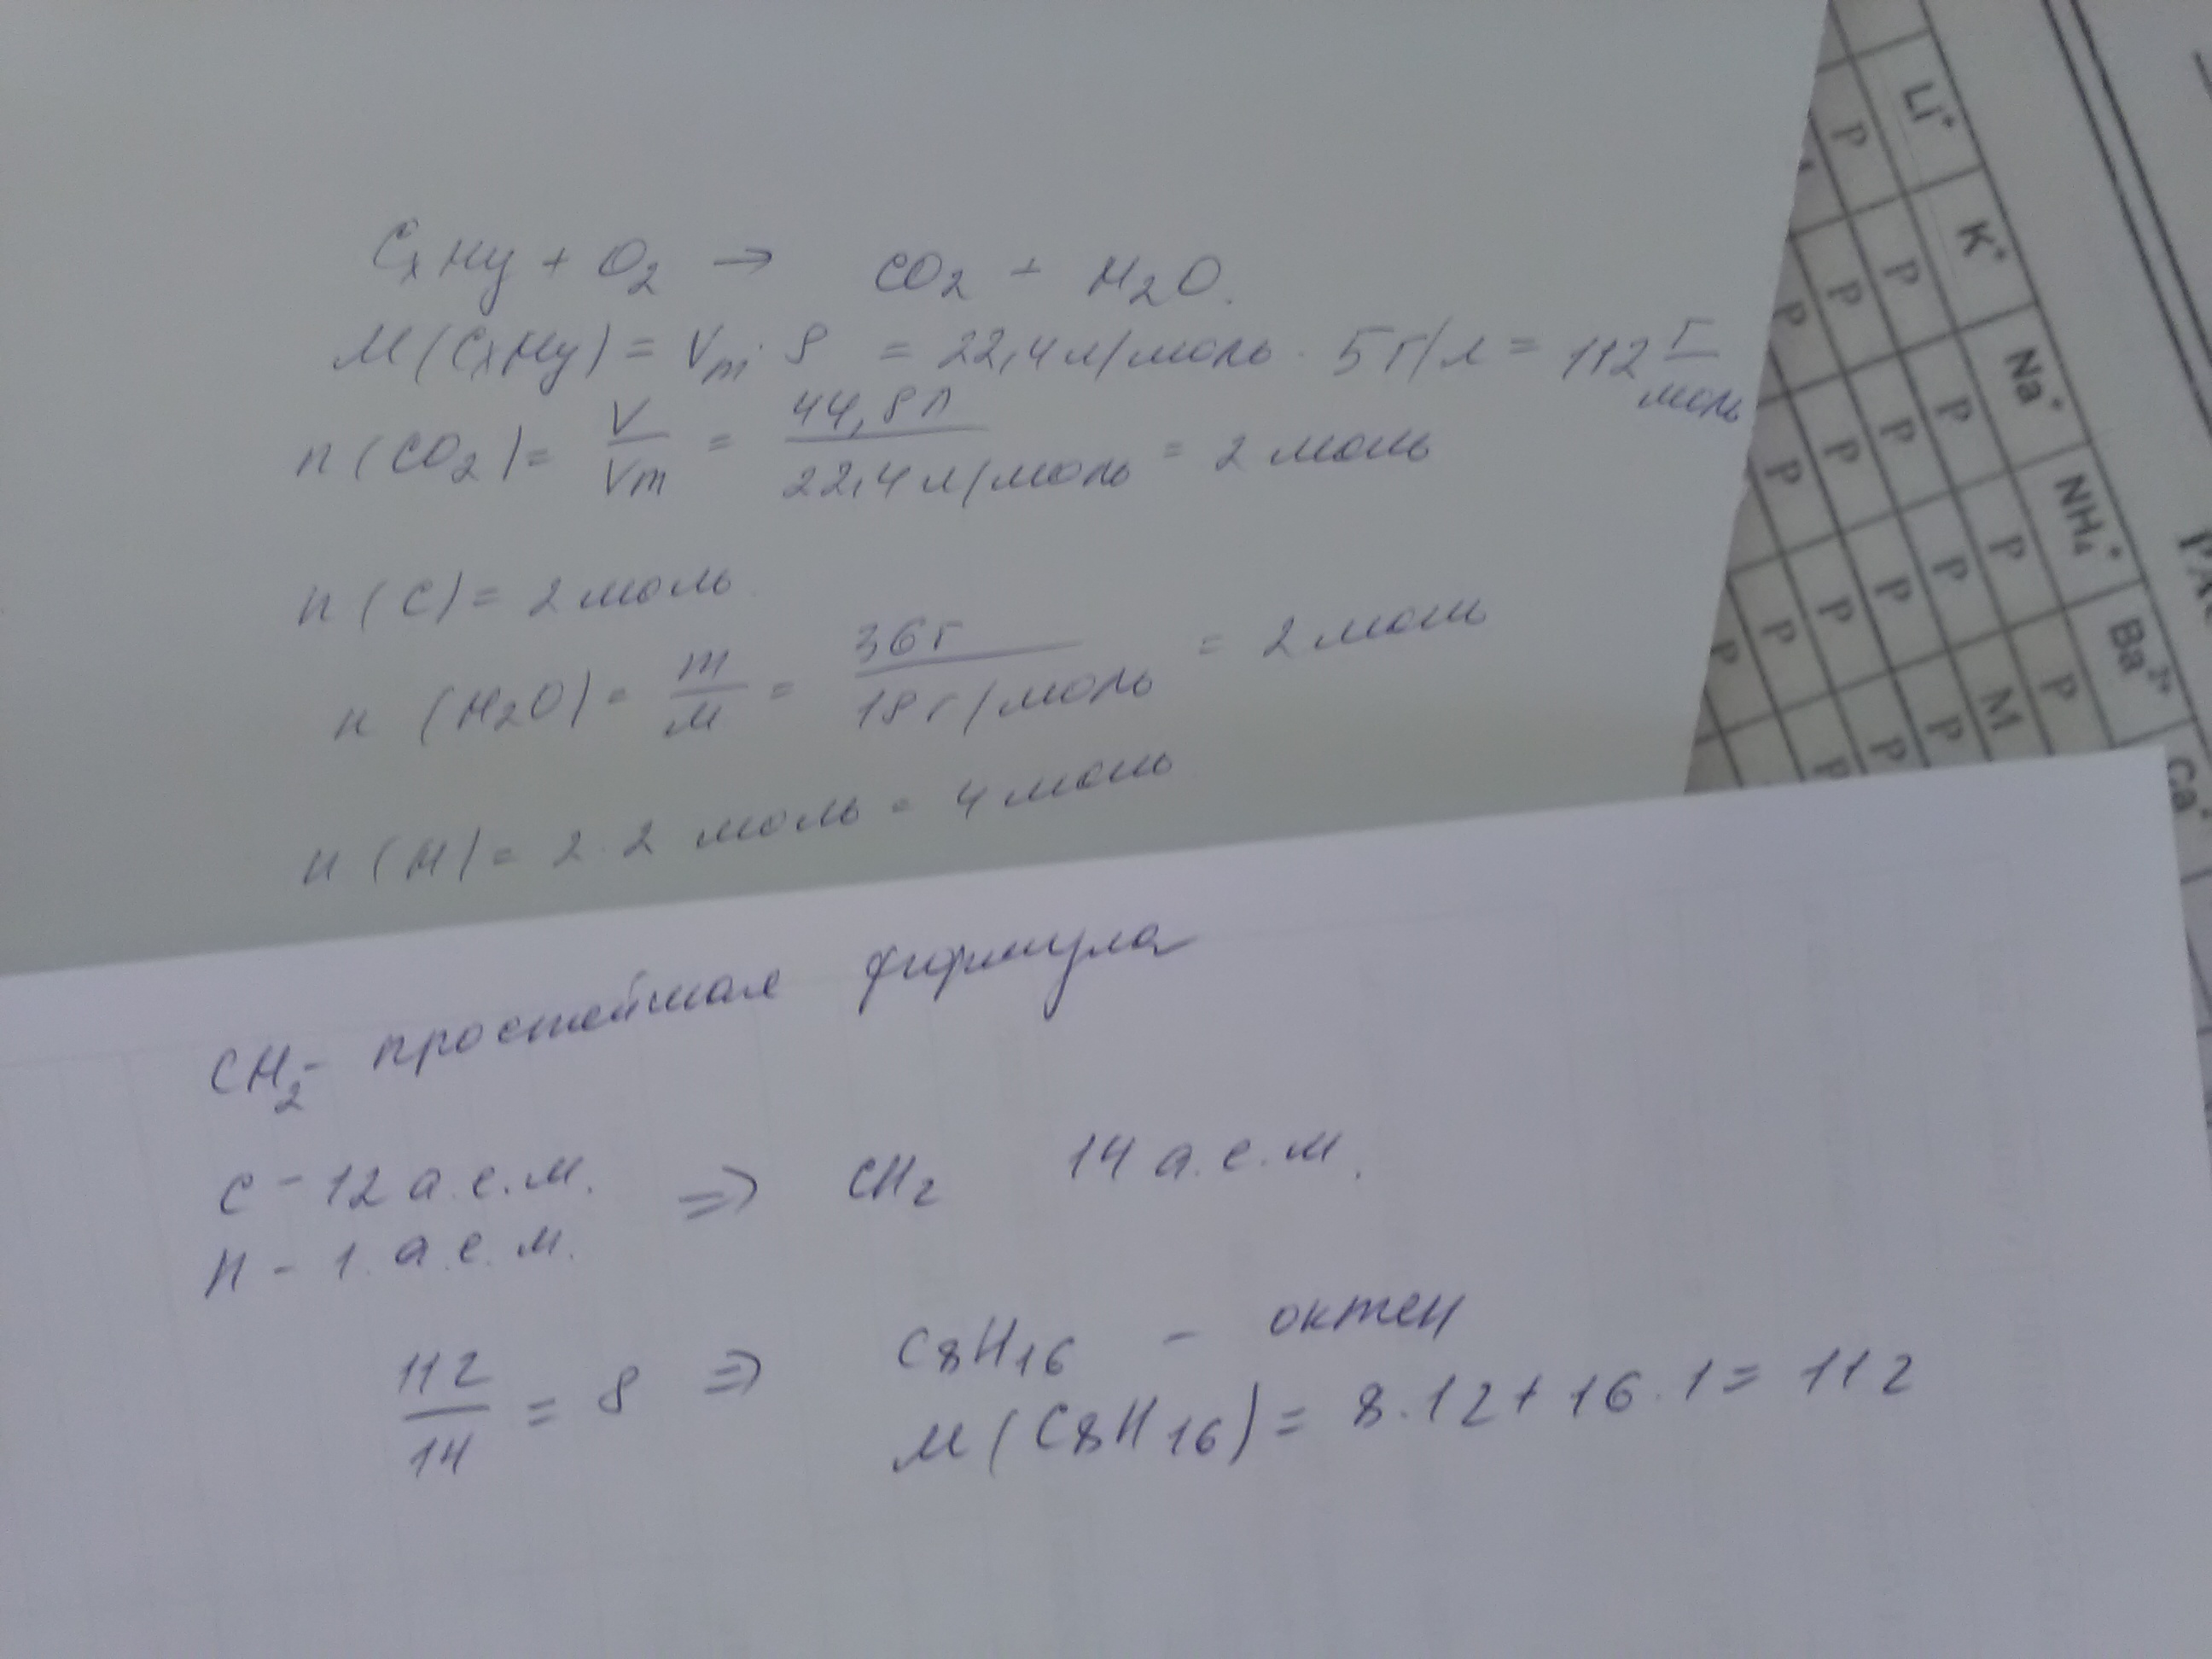 CxHy + O2 → CO2 + H2O.
M(CxHy) = Vm · ρ = 22,4 л/моль · 5 г/л = 112 г/моль
n(CO2) = V/Vm = 44,8 л/22,4 л/моль = 2 моль
n(C) = 2 моль
n(H2O) = m/M = 36 г/18 г/моль = 2 моль
n(H) = 2 · 2 моль = 4 моль
CH2 - простейшая формула
C - 12 а.е.м. ⇒ CH2 14 а.е.м.
H - 1. а.е.м.
112/14 = 8 ⇒ C8H16 - октен
M(C8H16) = 8 · 12 + 16 · 1 = 112
Li⁺
K⁺
Na⁺
NH₄⁺
Ba²⁺
P P P
P P P
P P P P
P P P P P P
P M P P P